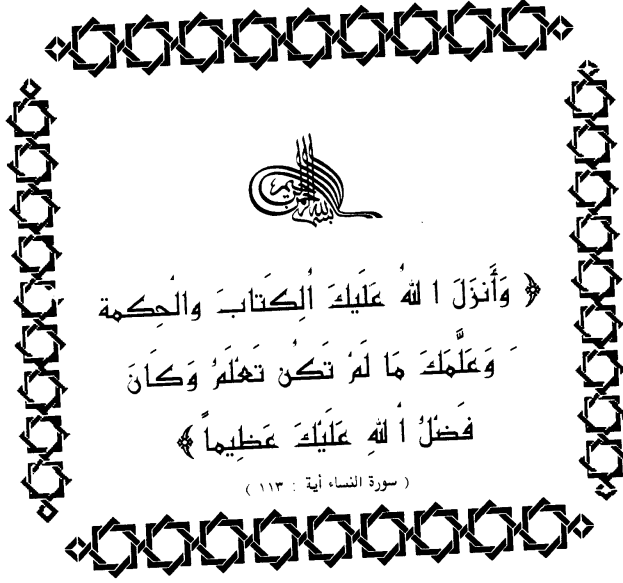 بسم الله الرحمن الرحيم
﴿ وَأَنزَلَ ا للهُ عَلَيكَ اُلِكتَابَ والْحِكمة
َ وَعَلَّمَكَ مَا لَمْ تَكُن تَعْلَمُ وَكَانَ
فَضْلُ اُ للهِ عَلَيْكَ عَظِيماً ﴾
( سورة النساء أية : ١١٣ )